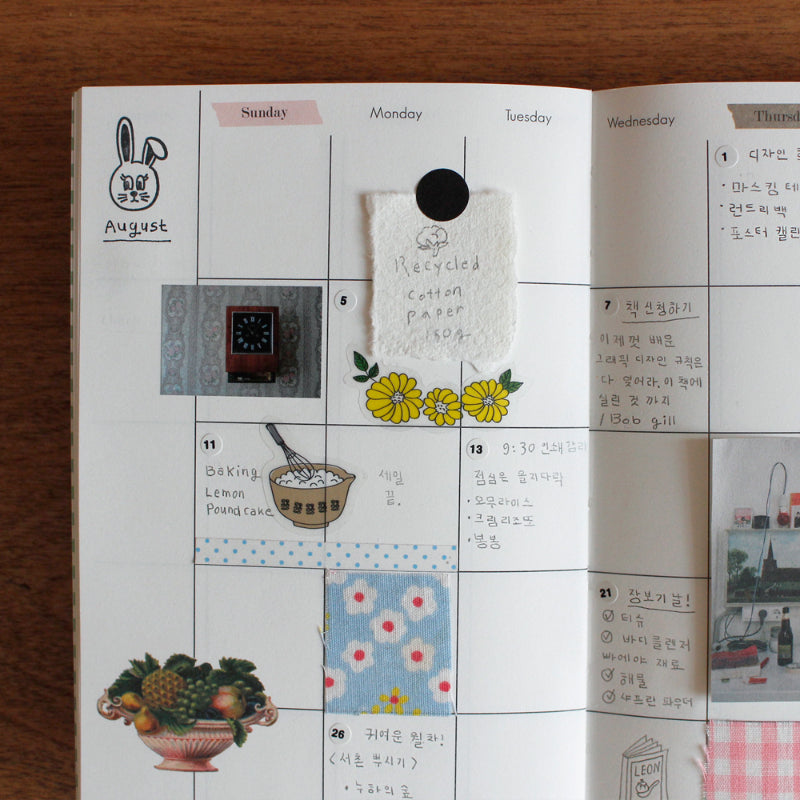 Sunday
Monday
Tuesday
Wednesday
Thursd
August
1 디자인
• 마스킹 테
• 런드리백
• 포스터 캘린
Recycled
cotton
paper
150g
5
7 책 신청하기
이제껏 배운
그래픽 디자인 규칙은
다 엎어라. 이 책에
실린 것 까지
/ Bob gill
11
Baking
Lemon
Poundcake
세일
끝.
13 9:30 인쇄감리
점심은 몬지다락
• 오므라이스
• 크림리조또
• 봉봉
21 장보기 날!
티슈
바디클렌저
빠에야 재료
해물
샤프란 파우더
26 귀여운 월차!
〈서촌 뿌시기〉
• 누하의 숲
LEON